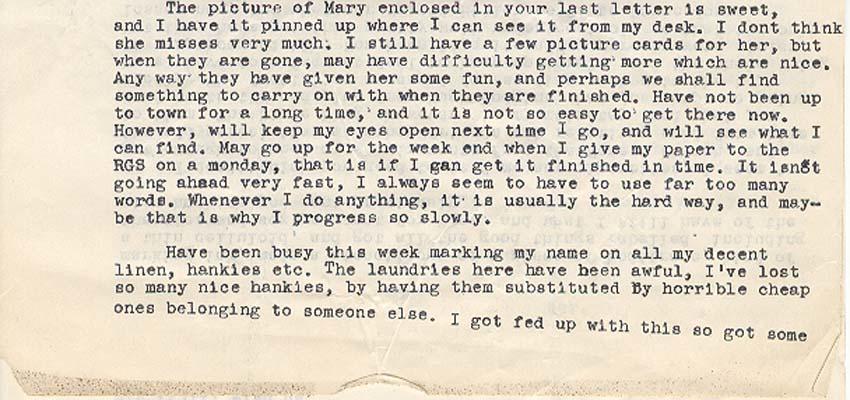 The picture of Mary enclosed in your last letter is sweet,
and I have it pinned up where I can see it from my desk. I dont think
she misses very much. I still have a few picture cards for her, but
when they are gone, may have difficulty getting more which are nice.
Any way they have given her some fun, and perhaps we shall find
something to carry on with when they are finished. Have not been up
to town for a long time, and it is not so easy to get there now.
However, will keep my eyes open next time I go, and will see what I
can find. May go up for the week end when I give my paper to the
RGS on a monday, that is if I gan get it finished in time. It isn8t
going ahaad very fast, I always seem to have to use far too many
words. Whenever I do anything, it is usually the hard way, and may-
be that is why I progress so slowly.
Have been busy this week marking my name on all my decent
linen, hankies etc. The laundries here have been awful, I've lost
so many nice hankies, by having them substituted by horrible cheap
ones belonging to someone else. I got fed up with this so got some